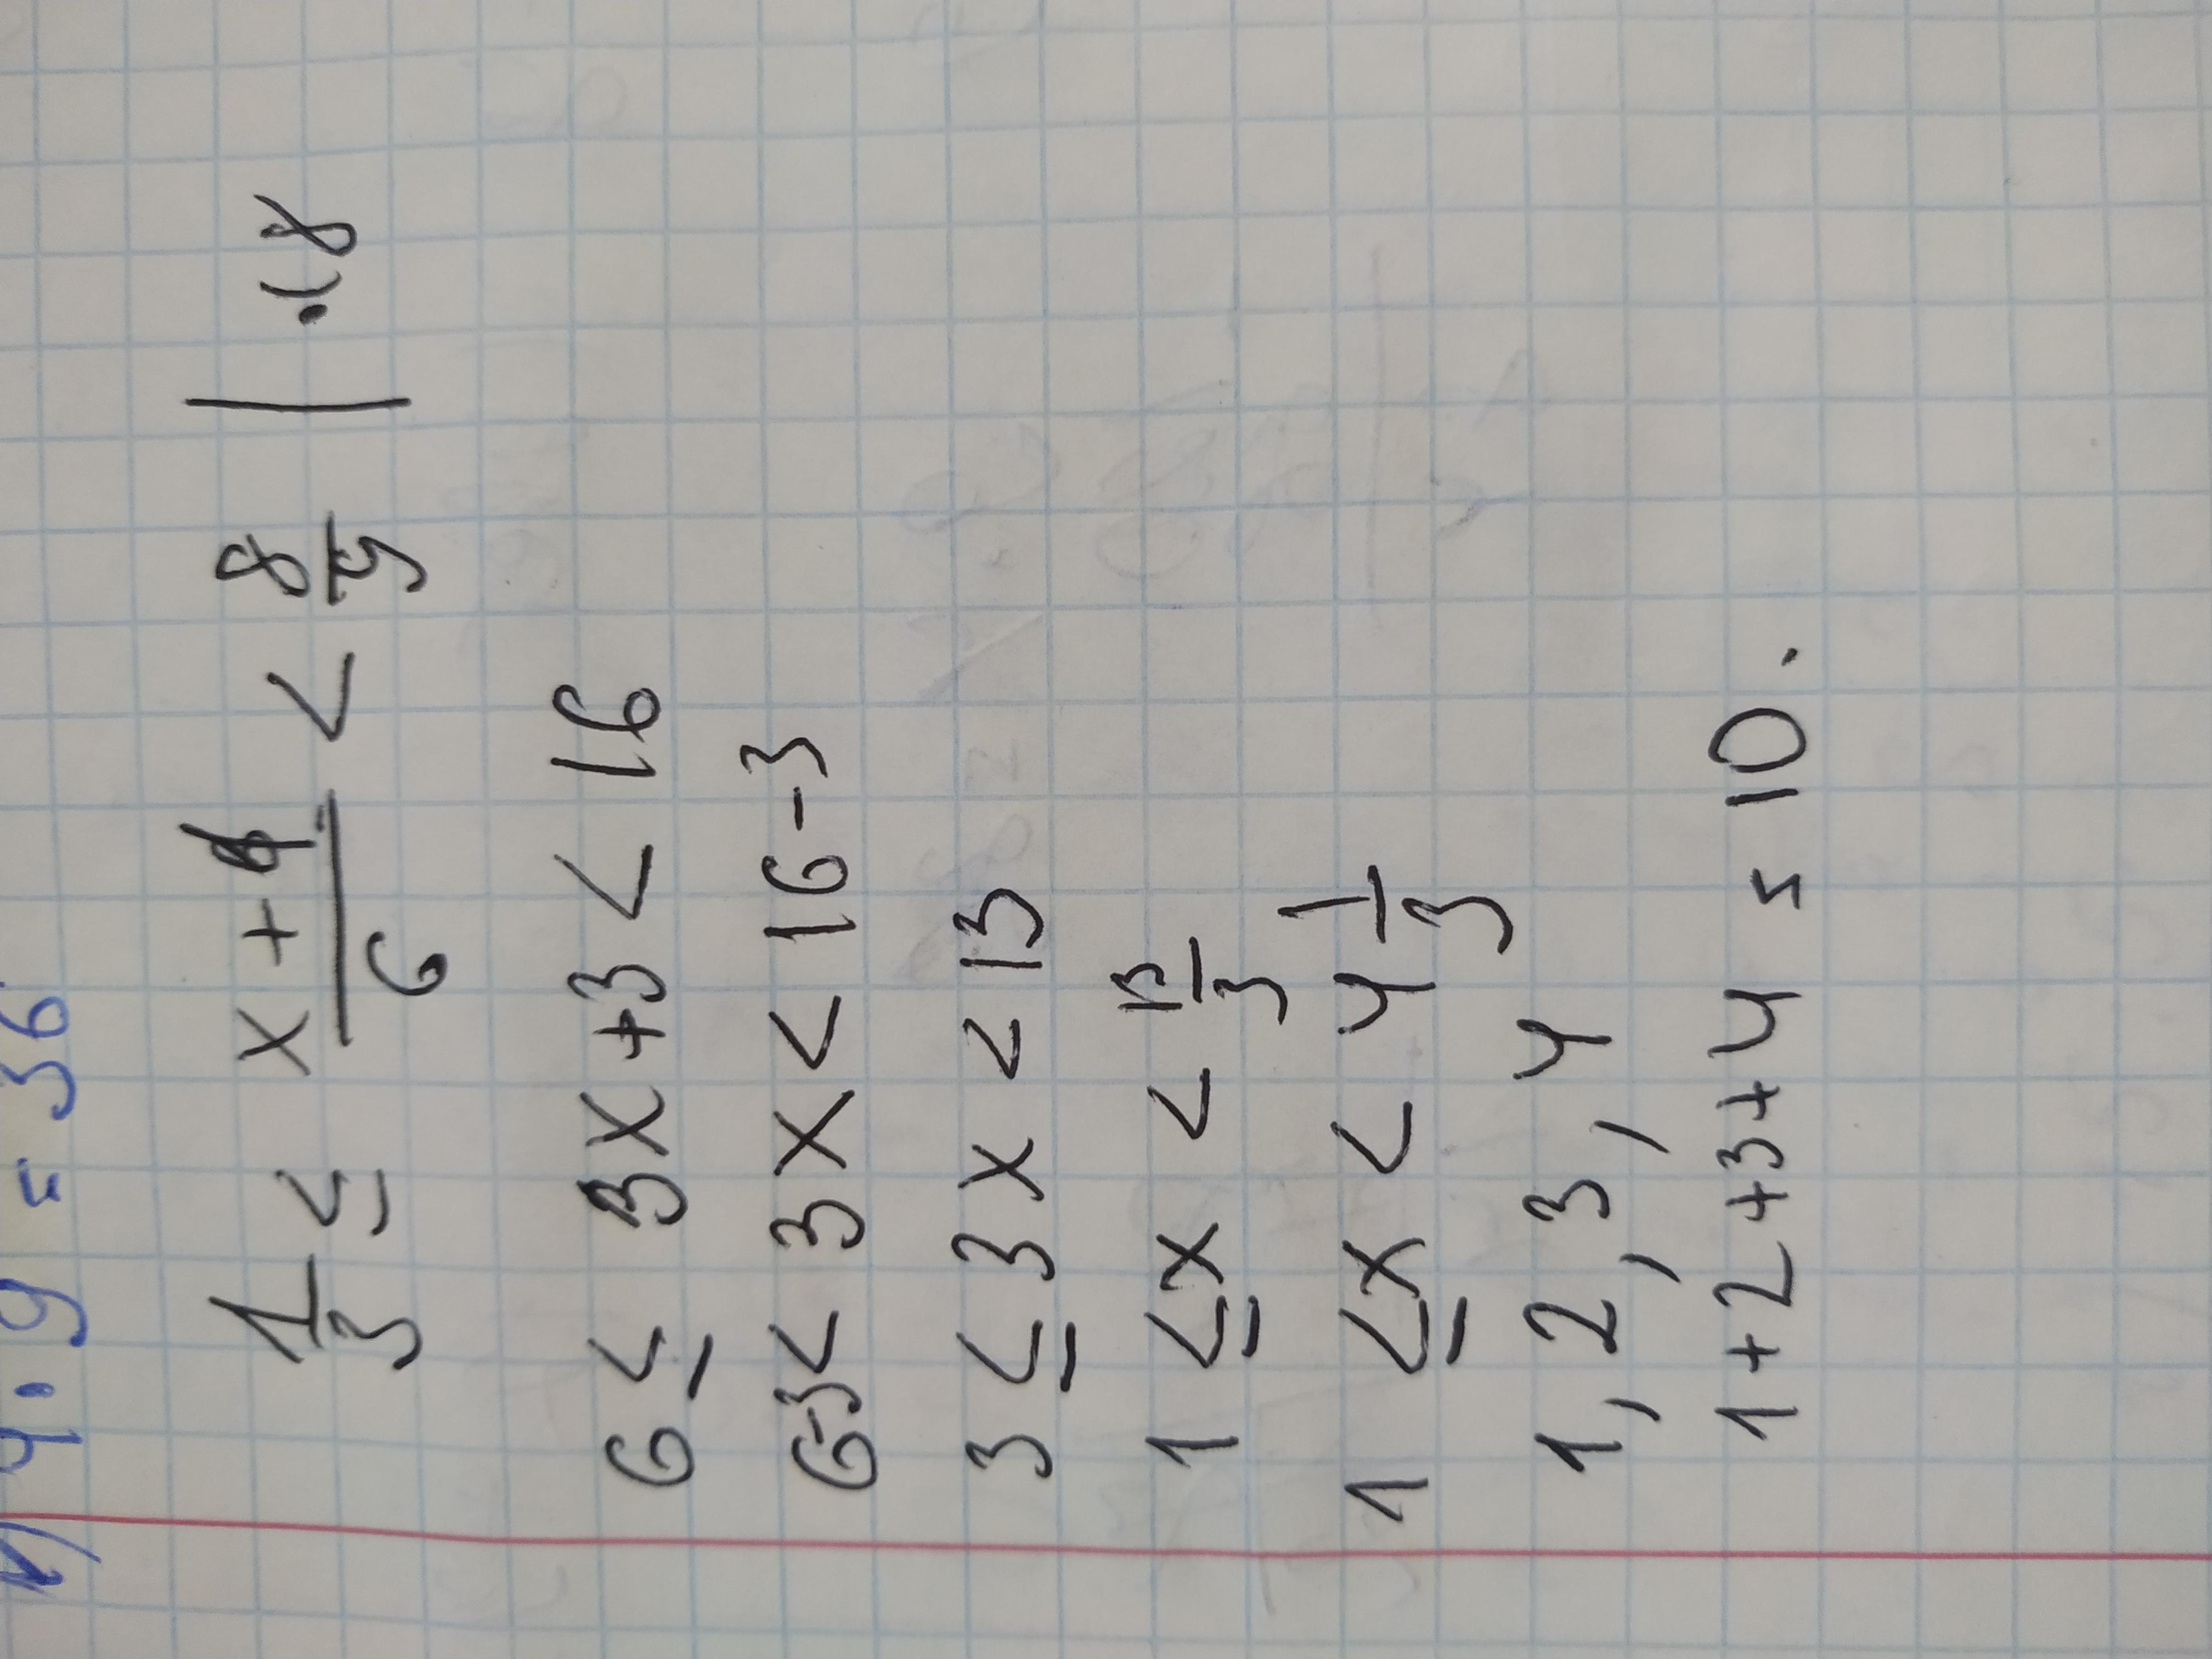 1) 4 · 9 = 36
1/3 ≤ (x + 1)/6 < 8/9 | · 18
6 ≤ 3x + 3 < 16
6-3 < 3x < 16 - 3
3 ≤ 3x < 13
1 ≤ x < 13/3
1 ≤ x < 4 1/3
1, 2, 3, 4
1 + 2 + 3 + 4 = 10.